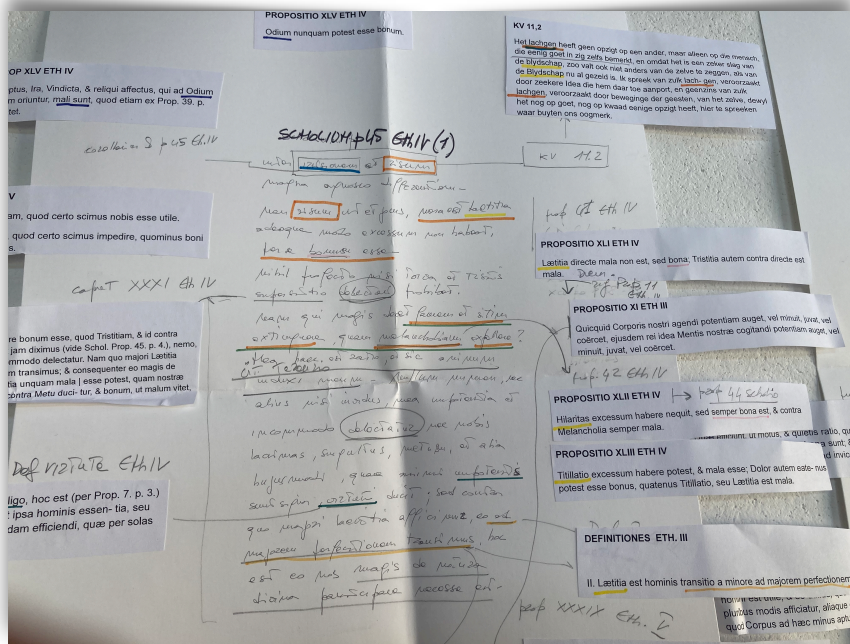 PROPOSITIO XLV ETH IV
Odium nunquam potest esse bonum.
KV 11,2
Het lachgen heeft geen opzigt op een ander, maar alleen op die mensch,
die eenig goet in zig zelfs bemerkt, en omdat het is een zeker slag van
de blydschap, zoo valt ook niet anders van de zelve te zeggen, als van
de Blydschap nu al gezeid is. Ik spreek van zulk lach- gen, veroorzaakt
door zeekere Idea die hem daar toe aanport, en geenzins van zulk
lachgen, veroorzaakt door beweginge der geesten, van het zelve, dewyl
het nog op goet, nog op kwaad eenige opzigt heeft, hier te spreeken
waar buyten ons oogmerk.
OP XLV ETH IV
ptus, Ira, Vindicta, & reliqui affectus, qui ad Odium
m oriuntur, mali sunt, quod etiam ex Prop. 39. p.
tet.
corollarium p 45 Eth.IV
SCHOLIUM p45 EthIV (1)
inter irrisionem et risum
magna agnosco differentiam-
nam risum ut et jocus, mera est laetitia
adeoque modo excessum non habeat,
per se bonus est-
nihil profecto nisi torva et tristis
superstitio delectari prohibet.
nam qui magis decet famem et sitim
extinguere, quam melancholiam expellere?
Mea haec est ratio et sic animum
induxi meum- nullum numen, nec
alius nisi invidus, mea impotentia et
incommodo delectatur nec nobis
lacrimas, singultus, metum, et alia
hujusmodi, quae animi impotentis
sunt signa, virtuti ducit; sed contra
quo majori laetitia afficimur, eo ad
majorem perfectionem transimus, hoc
est eo nos magis de natura
divina participare necesse est-
KV 11.2
V
am, quod certo scimus nobis esse utile.
quod certo scimus impedire, quominus boni
s.
caput XXXI Eth IV
re bonum esse, quod Tristitiam, & id contra
jam diximus (vide Schol. Prop. 45. p. 4.), nemo,
mmodo delectatur. Nam quo majori Lætitia
m transimus; & consequenter eo magis de
tia unquam mala | esse potest, quam nostræ
contra Metu duci- tur, & bonum, ut malum vitet,
Def virtute Eth IV
ligo, hoc est (per Prop. 7. p. 3.)
ipsa hominis essen- tia, seu
dam efficiendi, quæ per solas
prop 41 Eth IV
PROPOSITIO XLI ETH IV
Lætitia directe mala non est, sed bona; Tristitia autem contra directe est
mala.
Dem.
Prop 11
Eth III
PROPOSITIO XI ETH III
Quicquid Corporis nostri agendi potentiam auget, vel minuit, juvat, vel
coërcet, ejusdem rei idea Mentis nostræ cogitandi potentiam auget, vel
minuit, juvat, vel coërcet.
prop 42 Eth IV
PROPOSITIO XLII ETH IV
prop 44 scholio
Hilaritas excessum habere nequit, sed semper bona est, & contra
Melancholia semper mala.
ut motus, & quietis ratio, qu
PROPOSITIO XLIII ETH IV
Titillatio excessum habere potest, & mala esse; Dolor autem eate- nus
potest esse bonus, quatenus Titillatio, seu Lætitia est mala.
DEFINITIONES ETH. III
II. Lætitia est hominis transitio a minore ad majorem perfectionem
pluribus modis afficiatur, aliaque
quod Corpus ad hæc minus aptu
prop XXXIX Eth. V